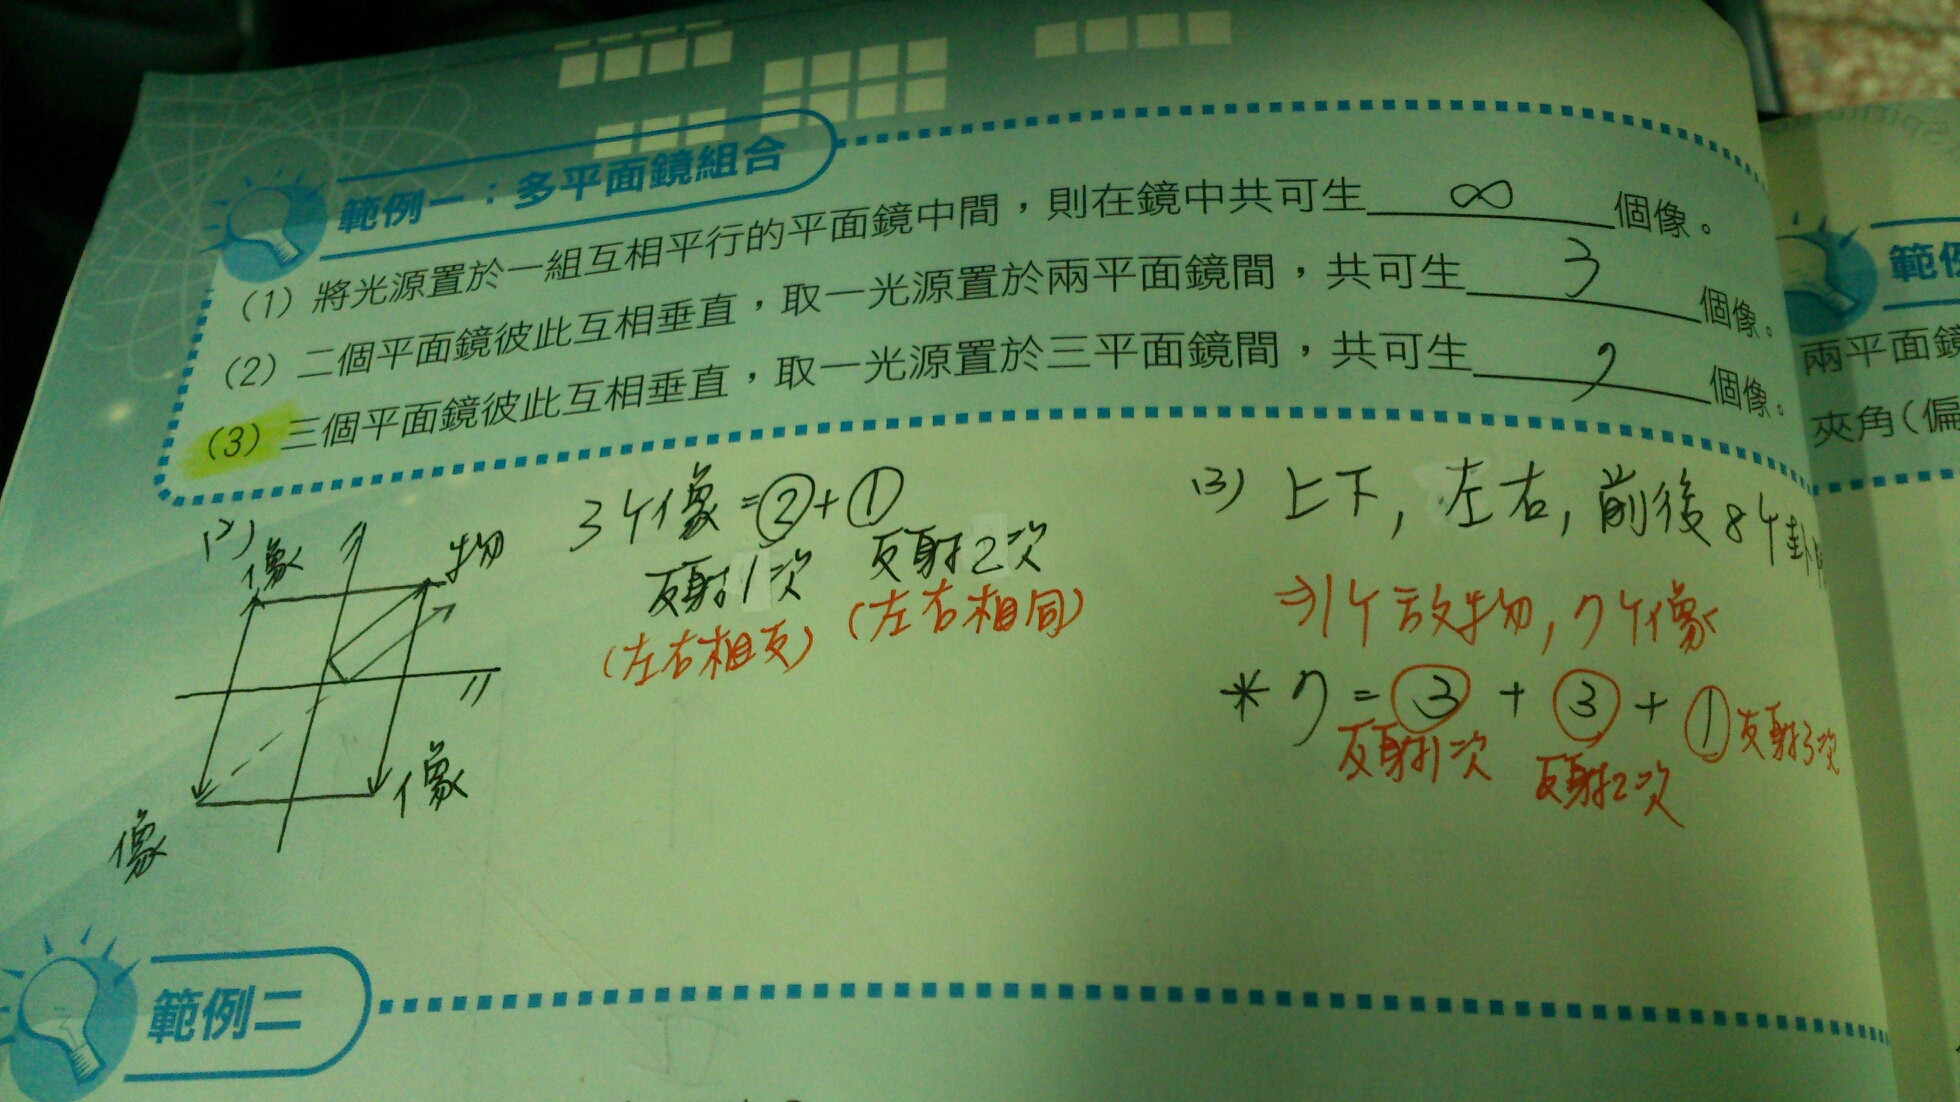 範例一：多平面鏡組合
(1) 將光源置於一組互相平行的平面鏡中間，則在鏡中共可生 ∞ 個像。
(2) 二個平面鏡彼此互相垂直，取一光源置於兩平面鏡間，共可生 3 個像。
(3) 三個平面鏡彼此互相垂直，取一光源置於三平面鏡間，共可生 7 個像。
(2)
像
物
像
像
3个像=②+①
反射1次 反射2次
(左右相反) (左右相同)
(3) 上下, 左右, 前後 8个卦限
⇒1个放物, 7个像
* 7 = ③ + ③ + ① 反射3次
反射1次 反射2次
範例二
兩平面鏡
夾角(偏